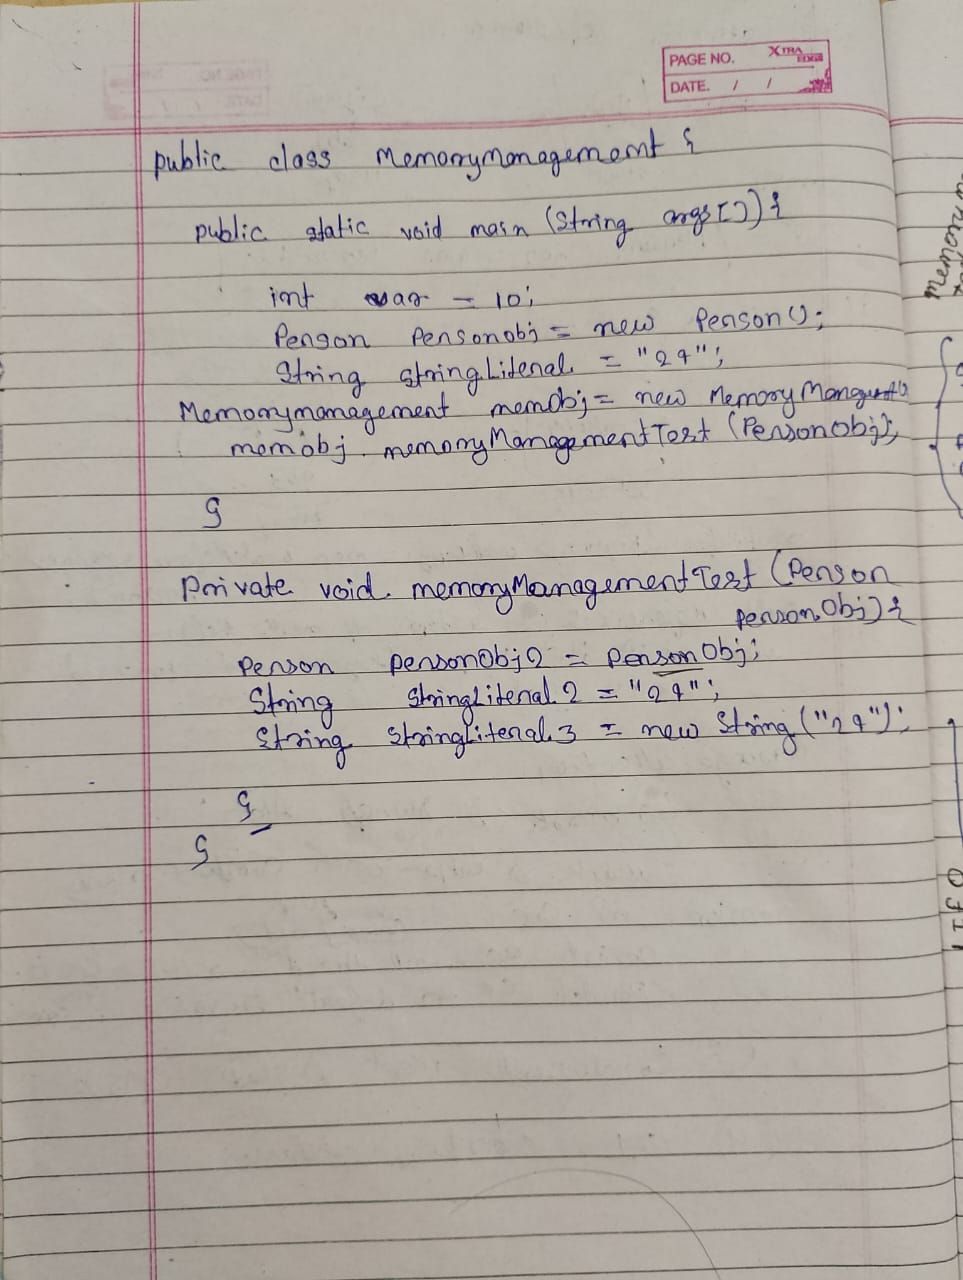 PAGE NO.
XTRA EDGE
DATE. / /
public class Memorymanagement {
public static void main (String args[]) {
int var = 10;
Person Personobj = new Person();
String stringLiteral = "24";
Memorymanagement memObj = new Memory
memobj. memoryManagementTest (PersonObj);
}
Private void memoryManagementTest (Person
personObj) {
Person personObj2 = personObj;
String StringLiteral 2 = "24";
String StringLiteral 3 = new String ("24");
}
}
memory
LIFO